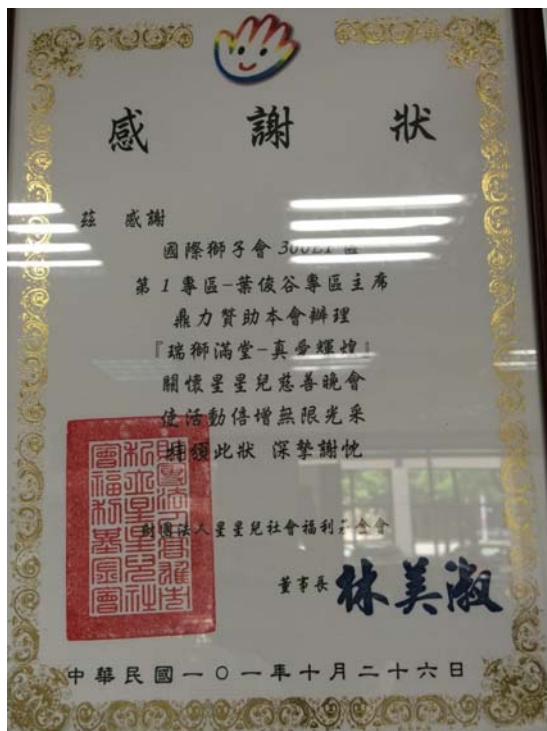 感謝狀
茲 感謝
國際獅子會300E1區
第1專區-葉俊谷專區主席
鼎力贊助本會辦理
『瑞獅滿堂-真愛輝煌』
關懷星星兒慈善晚會
使活動倍增無限光采
特頒此狀 深摯謝忱
財團法人星星兒社會福利基金會
董事長 林美淑
中華民國一〇一年十月二十六日